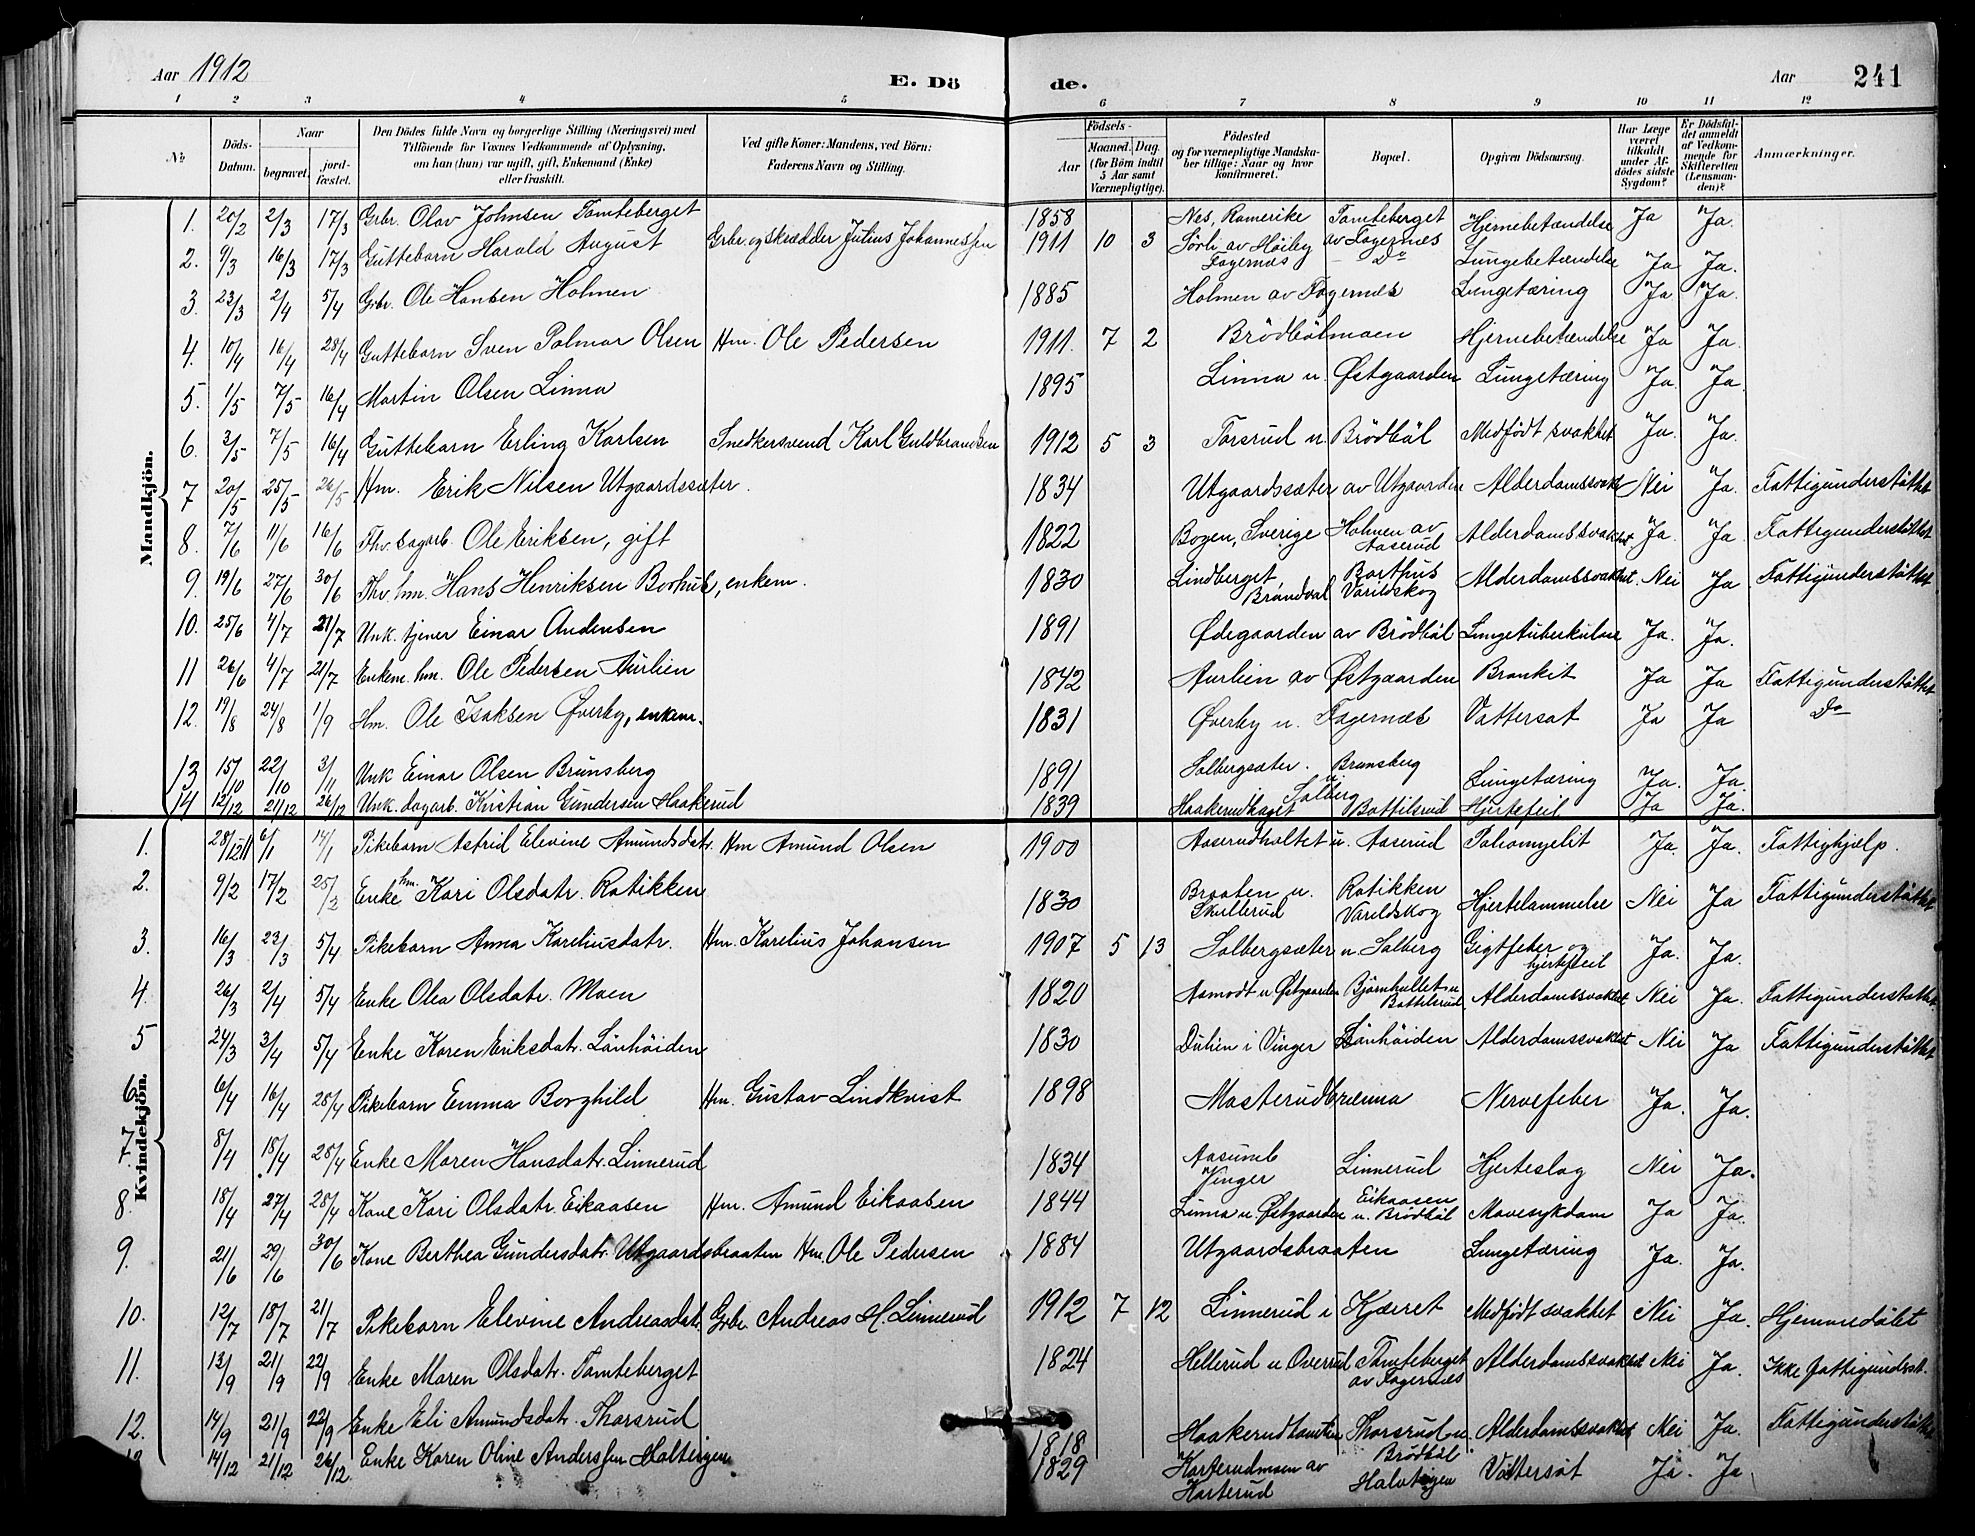 Aar 1912 E. Dö de. Aar 241
1 2 3 4 5 6 7 8 9 10 11 12
No Döds-Datum. Naar begravet. jordfæstet. Den Dödes fulde Navn og borgerlige Stilling (Næringsvei) med Tilföiende for Voxnes Vedkommende af Oplysning, om han (hun) var ugift, gift, Enkemand (Enke) eller fraskilt. Ved gifte Koner: Mandens, ved Börn: Faderens Navn og Stilling. Födsels- Aar Maaned. Dag. (for Börn indtil 5 Aar samt Værnepligtige). Födested og for værnepligtige Mandskaber tillige: Naar og hvor konfirmeret. Bopæl. Opgiven Dödsaarsag. Har Læge været tilkaldt under Afdödes sidste Sygdom? Er Dödsfaldet anmeldt af Vedkommende for Skifteretten (Lensmanden)? Anmærkninger.
Mandkjön.
1. 20/2 2/3 17/3 Grbr. Olav Johnsen Tomteberget 1858 Nes, Romerike Tomteberget av Fagernes Hjernebetændelse Ja Ja.
2. 9/3 16/3 17/3 Guttebarn Harald August Grbr. og skrædder Julius Johannessen 1911 10 3 Sörli av Höiby Fagernes Do Lungebetændelse Ja Ja.
3. 23/3 2/4 5/4 Grbr. Ole Hansen Holmen 1885 Holmen av Fagernes Lungetæring Ja Ja.
4. 10/4 16/4 28/4 Guttebarn Sven Palmar Olsen Hm. Ole Pedersen 1911. 7 2 Brödbölmoen Hjernebetændelse Ja Ja.
5. 1/5 7/5 16/4 Martin Olsen Linna 1895 Linna u. Østgaarden Lungetæring Ja. Ja.
6. 3/5 7/5 16/4 Guttebarn Erling Karlsen Snedkersvend Karl Guldbrandsen 1912 5 3 Torsrud u. Brödböl Medfödt svakhet Ja. Ja.
7 20/5 25/5 26/5 Hm. Erik Nilsen Utgaardssæter. 1834 Utgaardssæter av Utgaarden Alderdomssvakh. Nei Ja. Fattigunderstöttet
8. 7/6 11/6 16/6 Fhv. dagarb. Ole Eriksen, gift 1822 Bogen, Sverige Holmen av Aaserud Alderdomssvakhet Ja. Ja. Fattigunderstöttet
9. 19/6 27/6 30/6 Fhv. hm. Hans Henriksen Borhus, enkem. 1830 Lindberget, Brandval Borthus Varildskog Alderdomssvakhet. Nei Ja Fattigunderstöttet
10. 25/6 4/7 21/7 Unk. tjener Einar Andersen 1891 Ødegaarden av Brödböl Lungetuberkulose Ja. Ja.
11 26/6 4/7 21/7 Enkem. hm. Ole Pedersen Aurlien 1842 Aurlien av Østgaarden Bronkit Ja Ja Fattigunderstöttet
12. 19/8 24/8 1/9 Hm. Ole Isaksen Øverby, enkem. 1831 Øverby u. Fagernes Vattersot Ja Ja Do
13 15/10 22/10 3/11 Unk Einar Olsen Brunsberg 1891 Solbergsæter. Brunsberg u. Solberg Lungetæring Ja. Ja.
14 12/12 21/12 26/12 Unk. dagarb. Kristian Gundersen Haakerud 1839 Haakerudhaget Bottilsrud Hjertefeil Ja Ja.
Kvindekjön.
1. 28/12 11 6/1 14/1 Pikebarn Astrid Elevine Amundsdatr. Hm Amund Olsen 1900 Aaserudholtet u. Aaserud Poliomyelit Ja. Ja. Fattighjælp.
2. 9/2 17/2 25/2 Enke hm. Kari Olsdatr. Rotikken 1830 Braaten u. Skullerud Rotikken Varildskog Hjertelammelse Nei Ja Fattigunderstöttet
3. 16/3 23/3 5/4 Pikebarn Anna Kareliusdatr. Hm. Karelius Johansen 1907 5 13 Solbergsæter u. Solberg Gigtfeber og hjertefeil Ja. Ja.
4. 26/3 2/4 5/4 Enke Olea Olsdatr. Moen 1820 Aamodt u Østgaarden Björnhullet u Bottilsrud Alderdomssvakhet Nei Ja. Fattigunderstöttet.
5 24/3 3/4 5/4 Enke Karen Eriksdatr. Lönhöiden 1830 Dulien i Vinger Lönhöiden Alderdomssvakhet Nei Ja Fattigunderstöttet
6. 6/4 16/4 28/4 Pikebarn Emma Borghild Hm. Gustav Lindkvist 1898 Masterudbrænna Nervefeber Ja. Ja.
7. 8/4 18/4 28/4 Enke Maren Hansdatr. Linnerud 1834 Aasumb Vinger Linnerud Hjerteslag Nei Ja.
8. 18/4 27/4 28/4 Kone Kari Olsdatr. Eikaasen Hm. Amund Eikaasen 1844 Linna u. Østgaarden Eikaasen u. Brödböl Mavesykdom Ja Ja.
9. 21/6 29/6 30/6 Kone Berthea Gundersdatr. Utgaardsbraaten Hm. Ole Pedersen 1884 Utgaardsbraaten Lungetæring Ja. Ja.
10. 12/7 18/7 21/7 Pikebarn Elevine Andreasdat. Grbr. Andreas H. Linnerud 1912 7 12 Linnerud i Kjerret Medfödt svakhet Nei Ja. Hjemmedöbt
11. 13/9 21/9 22/9 Enke Maren Olsdatr. Tomteberget 1824 Hellerud u Overud Tomteberget av Fagernes Alderdomssvakhet Nei Ja. Ikke fattigunderst.
12. 14/9 21/9 22/9 Enke Eli Amundsdatr. Thorsrud 1818 Haakerudtomten Thorsrud u. Brödböl Alderdomssvakhet Nei Ja. Fattigunderstöttet
14/12 21/12 26/12 Enke Karen Oline Anderssen Holtingen 1829 Karterudmoen av Karterud Halvtigen Vattersot Ja. Ja